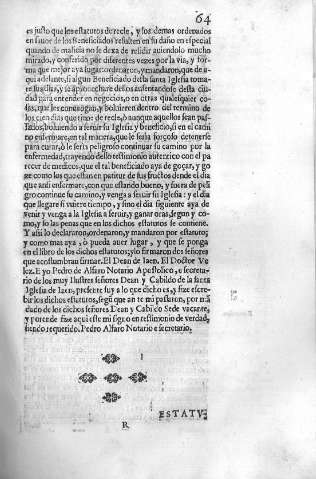 64
es justo que los estatutos de recle, y los demas ordenados
en fauor de los Beneficiados resulten en su daño en especial
quando de malicia no se dexa de residir auiendolo mucho
mirado, y conferido por diferentes vezes por la via, y for-
ma que mejor aya lugar ordenaron, y mandaron, que de a-
qui adelante, si algun Beneficiado desta santa Iglesia toma-
re su silla, y se aprouechare dellos ausentandose desta ciu-
dad para entender en negocios, o en otras qualesquier co-
sas, que les conuengan, y boluieren dentro del termino de
los cien dias que tiene de recle, ò aunque aquellos sean pas-
sados, boluiendo a seruir su Iglesia y beneficio, si en el cami
no enfermare, en tal manera, que le sea forçoso detenerse
para curar, ò le sería peligroso continuar su camino por la
enfermedad, trayendo dello testimonio autentico con el pa
recer de medicos, que el tal beneficiado aya de goçar, y go
ze como los que estan en patitur de sus fructos desde el dia
que ansi enfermare, con que estando bueno, y fuera de peli
gro continue su camino, y venga a seruir su Iglesia: y el dia
que llegare si uuiere tiempo, y sino el dia siguiente aya de
venir y venga a la Iglesia a seruir, y ganar oras, segun y co-
mo, y so las penas que en los dichos estatutos se contiene.
Y assi lo declararon, ordenaron, y mandaron por estatuto;
y como mas aya, ò pueda auer lugar, y que se ponga
en el libro de los dichos estatutos; y lo firmaron de señores
que acostumbran firmar. El Dean de Iaen. El Doctor Ve
lez. E yo Pedro de Alfaro Notario Apostolico, e secreta-
rio de los muy Ilustres señores Dean y Cabildo de la santa
Iglesia de Iaen, presente fuy a lo que dicho es, y fize escre-
bir los dichos estatutos, segũ que an te mi passaron, por mã
dado de los dichos señores Dean y Cabildo Sede vacante,
y porende fize aqui este mi signo en testimonio de verdad,
siendo requerido. Pedro Alfaro Notario e secretario.
R
ESTATV-